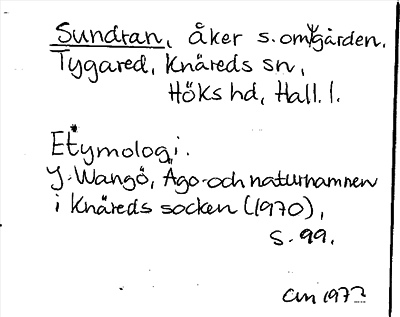 Sundran, åker s. om gården.
Tygared, Knäreds sn,
Höks hd, Hall. l.
Etymologi.
J. Wangö, Ägo- och naturnamnen
i Knäreds socken (1970),
s. 99.
1973